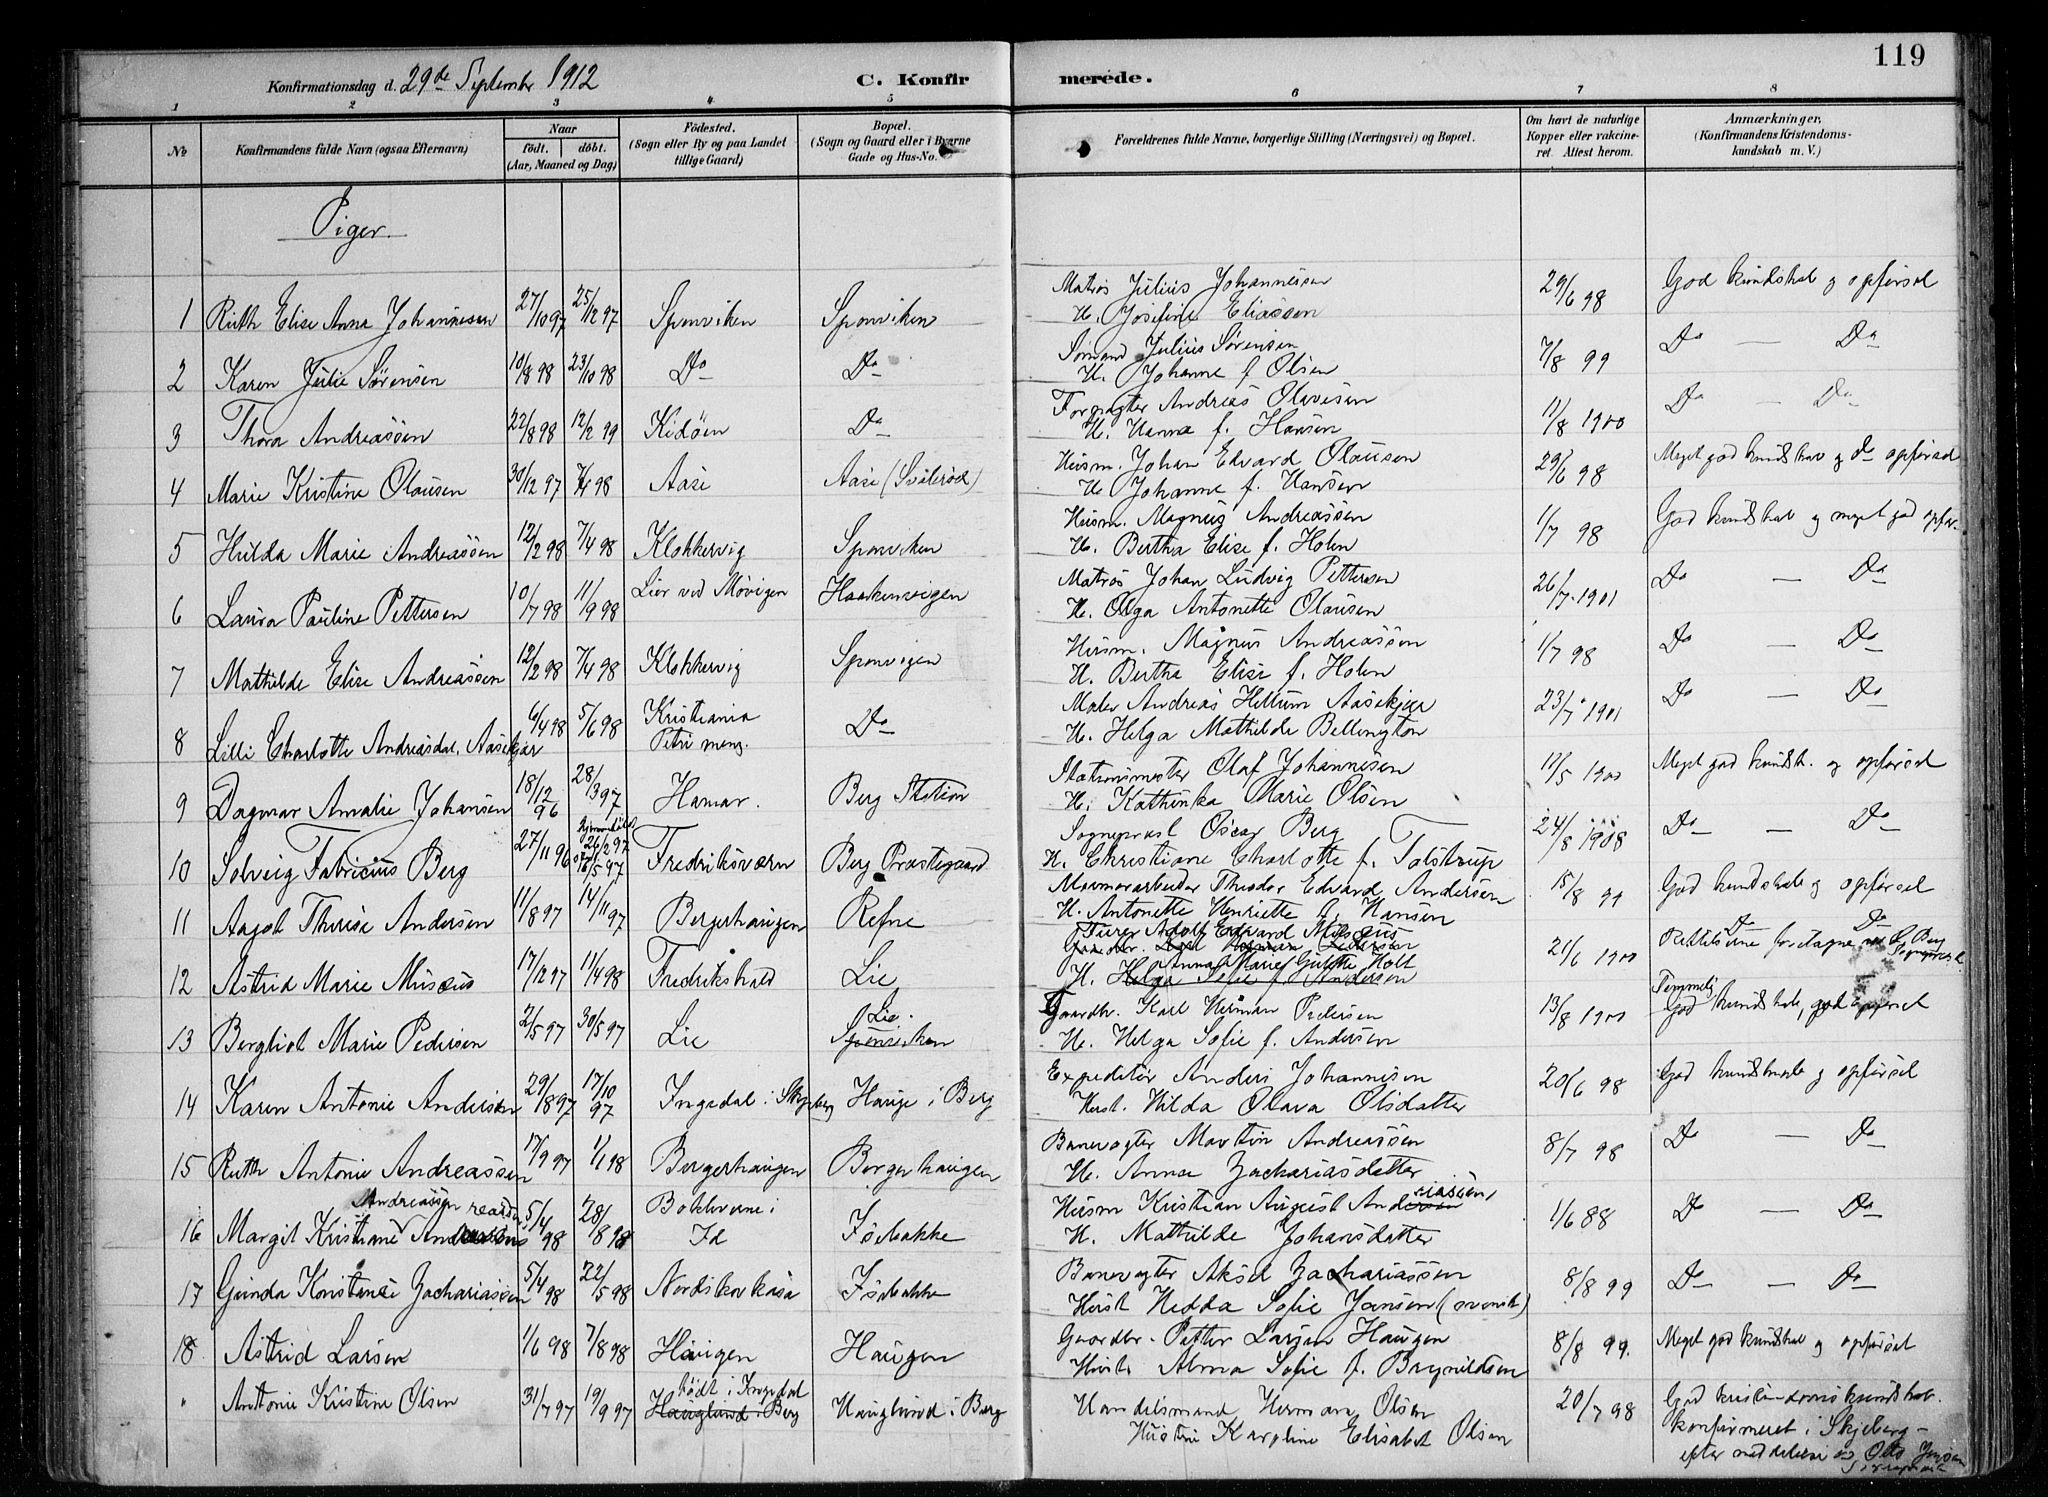 119
Konfirmationsdag d. 29de September 1912 C. Konfir merede.
1 2 3 4 5 6 7 8
No Konfirmandens fulde Navn (ogsaa Efternavn) Naar født. døbt. (Aar, Maaned og Dag) Födested. (Sogn eller By og paa Landet tillige Gaard) Bopæl. (Sogn og Gaard eller i Byerne Gade og Hus-No. Forældrenes fulde Navne, borgerlige Stilling (Næringsvei) og Bopæl. Om havt de naturlige Kopper eller vakcineret. Attest herom. Anmærkninger. (Konfirmandens Kristendomskundskab m. V.)
Piger.
1 Ruth Elise Anna Johannesen 27/10 97 25/12 97 Sponviken Sponviken Matros Julius Johannesen 29/6 98 God kundskab og opførsel
H. Josefine Eliassen
2 Karen Julie Sørensen 10/8 98 23/10 98 Do Do Sømand Julius Sørensen 7/8 99 Do — Do
H. Johanne f. Olsen
3 Thora Andreassen 22/8 98 12/2 99 Kidøen Do Forpagter Andreas Olavesen 11/8 1900 Do — Do
H. Hanna f. Hansen
4 Marie Kristine Olausen 30/12 97 7/4 98 Aase Aase (Svalerød) Husm. Johan Edvard Olausen 29/6 98 Meget god kundskab og do opførsel
H. Johanne f. Hansen
5 Hulda Marie Andreassen 12/2 98 7/4 98 Klokkervig Sponviken Husm. Magnus Andreassen 1/7 98 God kundskab og meget god opfør.
H. Bertha Elise f. Holen
6 Laura Pauline Pettersen 10/7 98 11/9 98 Lier ved Møvigen Haakenvigen Matros Johan Ludvig Pettersen 26/7 1901 Do — Do
H. Olga Antonette Olausen
7 Mathilde Elise Andreassen 12/2 98 7/4 98 Klokkervig Sponvigen Husm. Magnus Andreassen 1/7 98 Do — Do
H. Bertha Elise f. Holen
8 Lilli Charlotte Andreasdat. Aasekjær 6/4 98 5/6 98 Kristiania Petri meng. Do Maler Andreas Hellum Aasekjær 23/7 1901 Do — Do
H. Helga Mathilde Bellington
9 Dagmar Amalie Johansen 18/12 96 28/3 97 Hamar. Berg Station Stationsmester Olaf Johannesen 10/5 1900 Meget god kundsk. og opførsel
H. Kathinka Marie Olsen
10 Solveig Fabricius Berg 27/11 96 hjemmedøbt 26/2 97 16/5 97 Fredriksværn Berg Præstegaard Sogneprest Oscar Berg 24/8 1908 Do — Do
H. Christiane Charlotte f. Tolstrup
11 Aagot Therese Andersen 11/8 97 14/11 97 Bergerhaugen Refne Marmorarbeider Theodor Edvard Andersen 15/8 99 God kundskab og opførsel
H. Antonette Henriette f. Hansen
12 Astrid Marie Musæus 17/12 97 11/4 98 Fredrikshald Lie Adolf Edvard Musæus 21/6 1900 Do Do
Gaardbr. Karl Herman Pedersen Rettelserne foretagne
Anna Marie Holt
H. Helga Sofie f. Andersen
13 Bergliot Marie Pedersen 2/5 97 30/5 97 Lie Lie. Sponviken Gaardbr. Karl Herman Pedersen 13/8 1900 Temmelig god kundskab, god opførsel
H. Helga Sofie f. Andersen
14 Karen Antonie Andersen 29/8 97 17/10 97 Ingedal i Skjeberg Hauge i Berg Expeditør Anders Johannesen 20/6 98 God kundskab og opførsel
Hust. Hilda Olava Olsdatter
15 Ruth Antonie Andreassen 17/9 97 1/1 98 Bergerhaugen Bergerhaugen Banevogter Martin Andreassen 8/7 98 Do — Do
H. Anna Zachariasdatter
16 Margit Kristiane Andreassen 5/4 98 28/8 98 Id Isebakke Husm Kristian August Andreassen 1/6 88 Do — Do
H. Mathilde Johansdatter
17 Gunda Konstanse Zachariassen 5/4 98 22/5 98 Nordskovkasa Isebakke Banevogter Aksel Zachariassen 8/8 99 Do — Do
Hust Hedda Sofie Jansen (svensk)
18 Astrid Larsen 1/6 98 7/8 98 Haugen Haugen Gaardbr. Petter Larsen Haugen 8/8 99. Meget god kundskab og opførsel
Hust. Alma Sofie f. Brynildsen
" Antonie Kristine Olsen 31/7 97 19/9 97 født i Ingedal Hauglund i Berg Hauglund i Berg Handelsmand Herman Olsen 20/7 98 God kristendomskundskab.
Hustru Karoline Elisabet Olsen konfirmeret i Skjeberg –
efter meddelelse av Otto Jensen